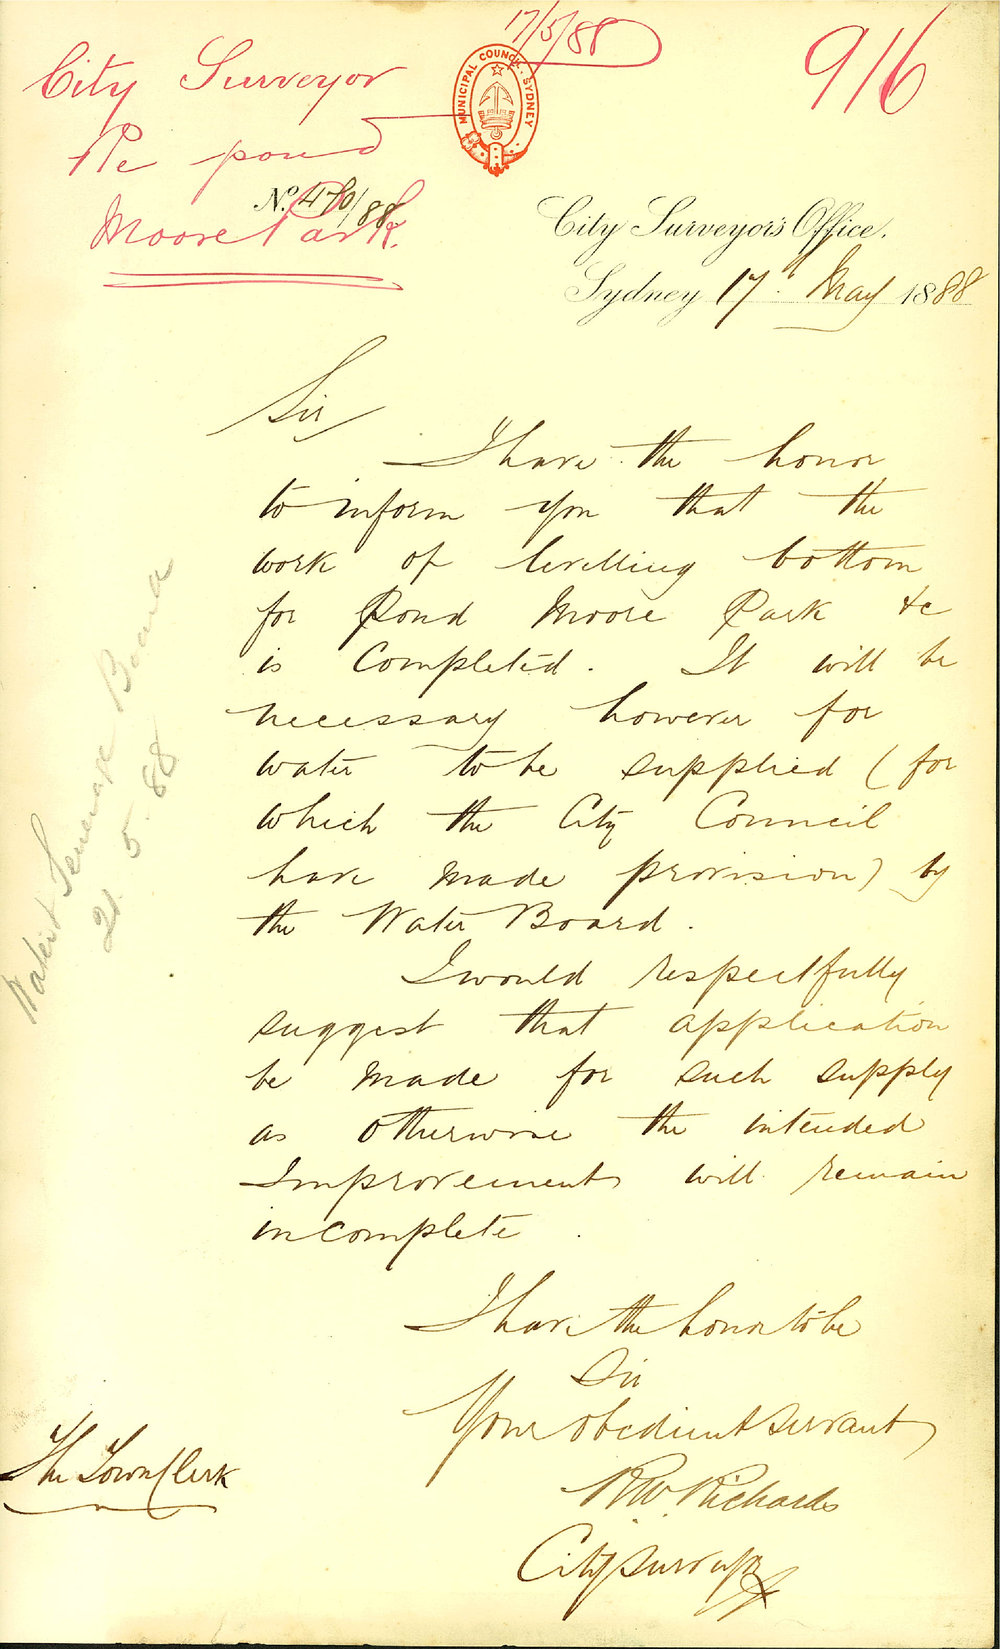 17/5/88
916
City Surveyor
Re pond
Moore Park.
MUNICIPAL COUNCIL. SYDNEY
No. 470/88
City Surveyor's Office.
Sydney 17 May 1888
Sir
I have the honor
to inform you that the
work of levelling bottom
for Pond Moore Park &c
is Completed. It will be
necessary however for
water to be supplied (for
which the City Council
have made provision) by
the Water Board.
I would respectfully
suggest that application
be made for such supply
as otherwise the intended
Improvements will remain
incomplete.
I have the honor to be
Sir
Your obedient servant
R W Richards
City Surveyor
The Town Clerk
Water & Sewerage Board
21.5.88